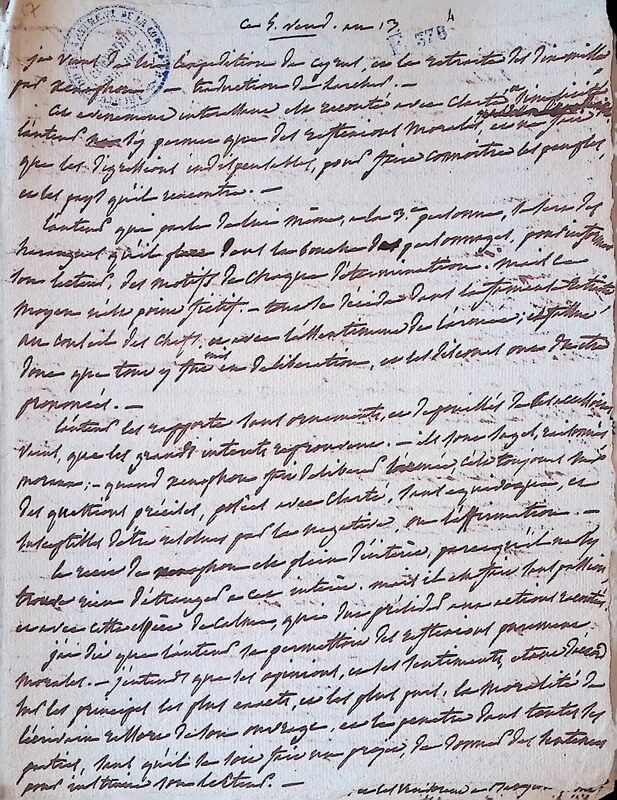 ce 5 vend. an 13
je viens de lire l'expédition de cyrus, ou la retraite des dix mille
par xenophon — traduction de Larcher. —
cet evenement interessant est raconté avec clarté, simplicité
l'auteur ne s'y permet que des reflexions morales, et ne fait
que les digressions indispensables, pour faire connoitre les peuples,
et les pays qu'il rencontre. —
l'auteur qui parle de lui même, à la 3e personne, se sert des
harangues qu'il place dans la bouche des personnages, pour informer
son lecteur, des motifs de chaque détermination. mais ce
moyen n'est point fictif. — tout se décide dans
au conseil des chefs, ou avec l'assentiment de l'armée; il fallut
donc que tout y fut mis en deliberation, et les discours ont du etre
prononcés. —
l'auteur les rapporte sans ornements, et depouillés de
vains, que les grands interets reprouvent. — ils sont sages, raisonnés
moraux; — quand xenophon fait deliberer l'armée, c'est toujours sur
des questions précises, posées avec clarté, sans equivoque, et
susceptibles d'etre resolues par la negative, ou l'affirmation. —
le recit de xenophon est plein d'interet, parce qu'il ne s'y
trouve rien d'étranger a cet interet. mais il est fait sans passion,
et avec cette espèce de calme, qui dut présider aux actions racontées.
j'ai dit que l'auteur se permettoit des reflexions purement
morales. — j'entends que ses opinions, et ses sentiments, etant d'accord
sur les principes les plus exacts, et les plus purs, la moralité de
l'écrivain ressort de son ouvrage, et le penetre dans toutes ses
parties, sans qu'il se soit fait un projet, de donner des sentences
pour instruire son lecteur. —